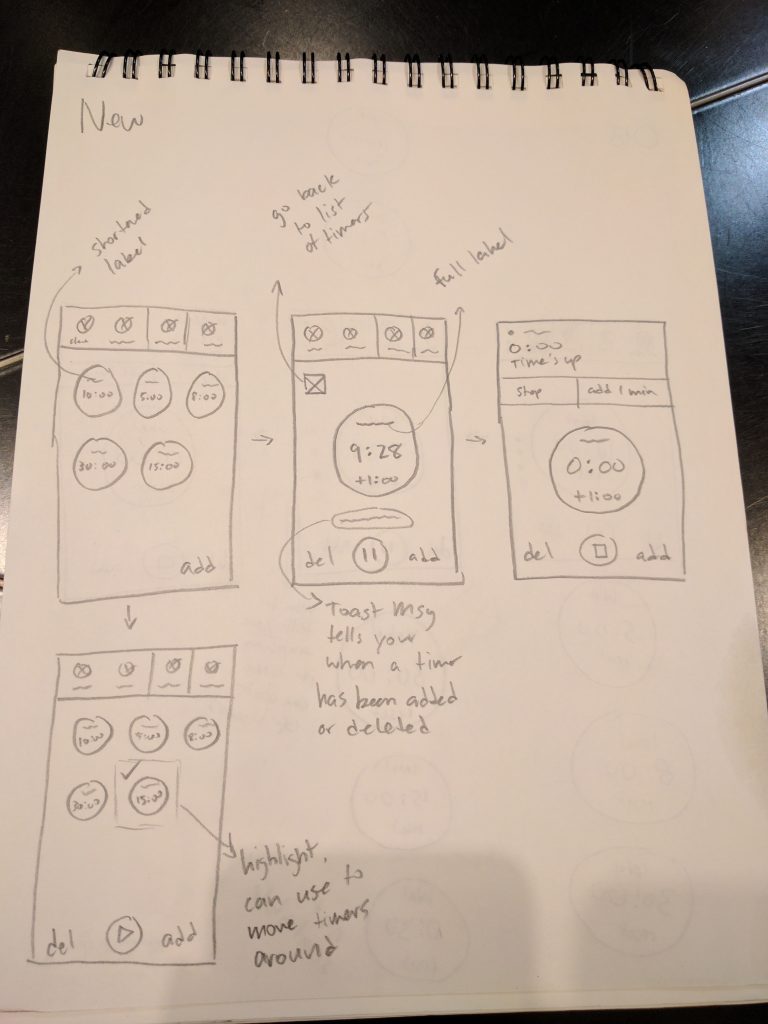 New
shortned
label
go back
to list
of timers
full label
10:00
5:00
8:00
30:00
15:00
add
9:28
+1:00
del
add
0:00
Time's up
Stop
add 1 min
0:00
+1:00
del
add
Toast Msg
tells your
when a timer
has been added
or deleted
10:00
5:00
8:00
30:00
15:00
del
add
highlight,
can use to
move timers
around